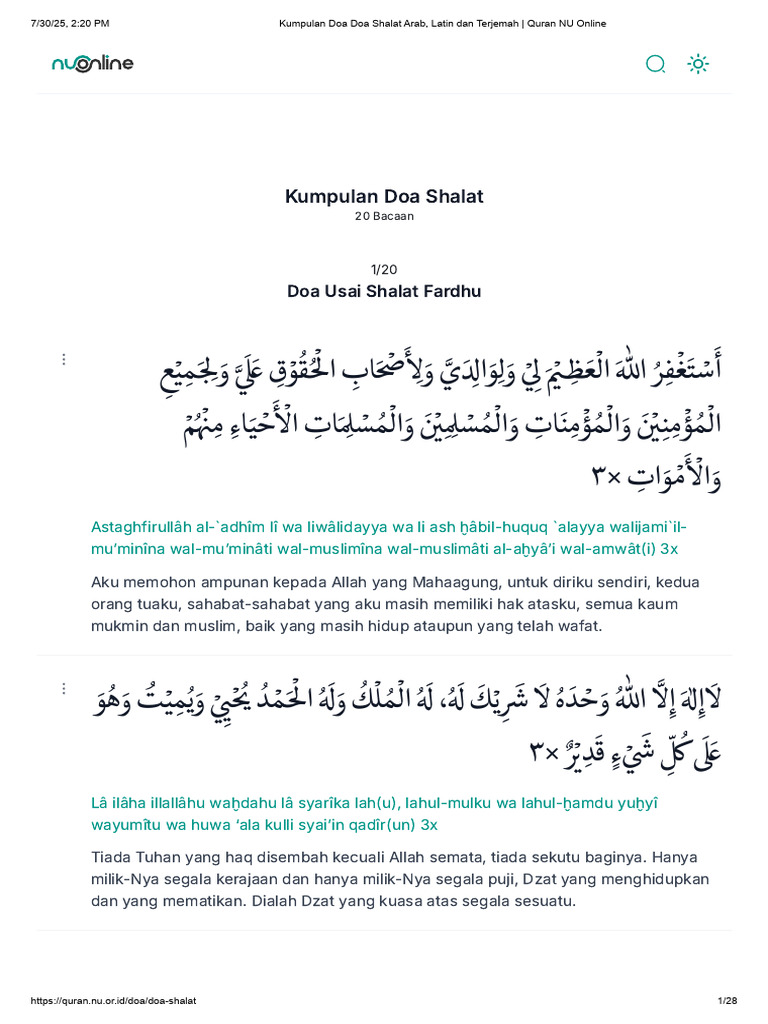 7/30/25, 2:20 PM Kumpulan Doa Doa Shalat Arab, Latin dan Terjemah | Quran NU Online
nuonline
Kumpulan Doa Shalat
20 Bacaan
1/20
Doa Usai Shalat Fardhu
أَسْتَغْفِرُ اللهَ الْعَظِـيْمَ لِيْ وَلِوَالِدَيَّ وَلِأَصْحَابِ الْحُقُوْقِ عَلَيَّ وَلِجَمِيْعِ
الْمُؤْمِنِيْنَ وَالْمُؤْمِنَاتِ وَالْمُسْلِمِيْنَ وَالْمُسْلِمَاتِ الْأَحْيَاءِ مِنْهُمْ
وَالْأَمْوَاتِ ×٣
Astaghfirullâh al-`adhîm lî wa liwâlidayya wa li ash ḫâbil-huquq `alayya walijami`il-
mu‘minîna wal-mu‘minâti wal-muslimîna wal-muslimâti al-aḫyâ’i wal-amwât(i) 3x
Aku memohon ampunan kepada Allah yang Mahaagung, untuk diriku sendiri, kedua
orang tuaku, sahabat-sahabat yang aku masih memiliki hak atasku, semua kaum
mukmin dan muslim, baik yang masih hidup ataupun yang telah wafat.
لَاإِلٰهَ إِلَّا اللهُ وَحْدَهُ لَا شَرِيْكَ لَهُ، لَهُ الْمُلْكُ وَلَهُ الْحَمْدُ يُحْيِيْ وَيُمِيْتُ وَهُوَ
عَلَى كُلِّ شَيْءٍ قَدِيْرٌ ×٣
Lâ ilâha illallâhu waḫdahu lâ syarîka lah(u), lahul-mulku wa lahul-ḫamdu yuḫyî
wayumîtu wa huwa ‘ala kulli syai’in qadîr(un) 3x
Tiada Tuhan yang haq disembah kecuali Allah semata, tiada sekutu baginya. Hanya
milik-Nya segala kerajaan dan hanya milik-Nya segala puji, Dzat yang menghidupkan
dan yang mematikan. Dialah Dzat yang kuasa atas segala sesuatu.
https://quran.nu.or.id/doa/doa-shalat 1/28